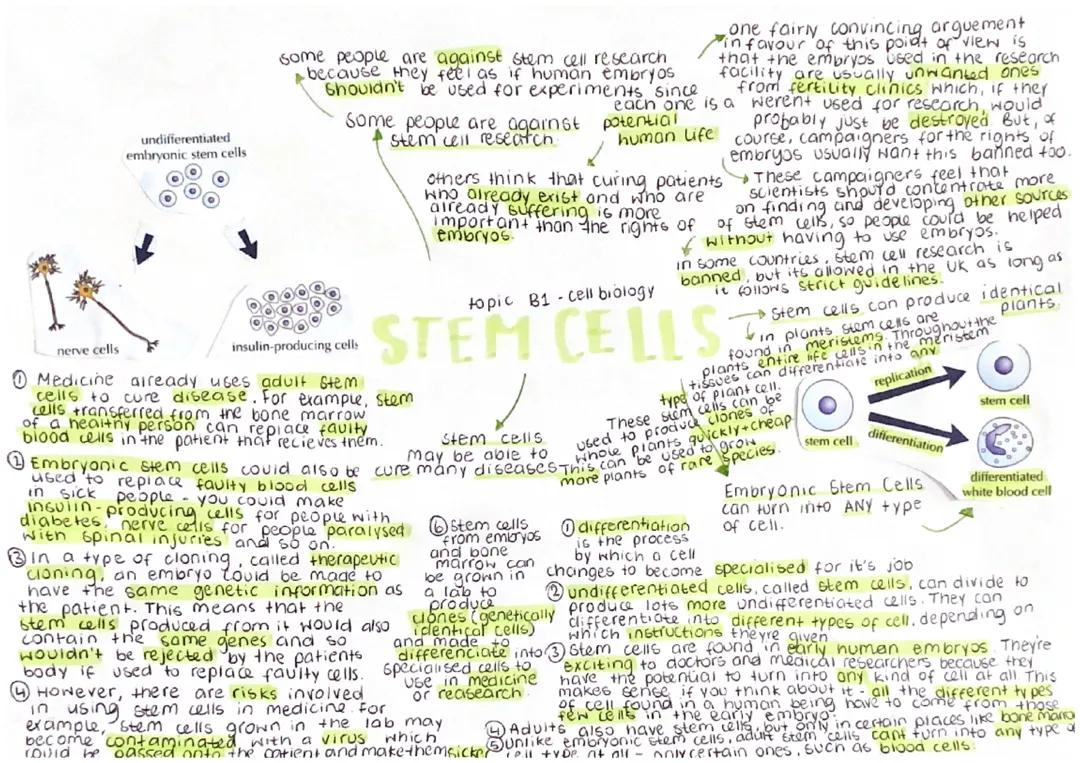 topic B1 - cell biology
STEM CELLS
some people are against stem cell research.
some people are against stem cell research
because they feel as if human embryos
shouldn't be used for experiments since
each one is a
potential
human life
others think that curing patients
who already exist and who are
already suffering is more
important than the rights of
embryos.
one fairly convincing arguement
in favour of this point of view is
that the embryos used in the research
facility are usually unwanted ones
from fertility clinics which, if they
werent used for research, would
probably just be destroyed. But, of
course, campaigners for the rights of
embryos usually want this banned too.
These campaigners feel that
scientists should concentrate more
on finding and developing other sources
of stem cells, so people could be helped
without having to use embryos.
in some countries, stem cell research is
banned, but its allowed in the UK as long as
it follows strict guidelines.
undifferentiated
embryonic stem cells
nerve cells
insulin-producing cells
stem cells can produce identical
plants.
in plants stem cells are
found in meristems. Throughout the
plants entire life cells in the meristem
tissues can differentiate into any
type of plant cell.
These stem cells can be
used to produce clones of
whole plants quickly+cheap
This can be used to grow
more plants of rare species.
stem cell
replication
stem cell
differentiation
differentiated
white blood cell
Embryonic Stem Cells
can turn into ANY type
of cell.
stem cells
may be able to
cure many diseases
① Medicine already uses adult stem
cells to cure disease. For example, stem
cells transferred from the bone marrow
of a healthy person can replace faulty
blood cells in the patient that recieves them.
② Embryonic stem cells could also be
used to replace faulty blood cells
in sick people - you could make
insulin-producing cells for people with
diabetes, nerve cells for people paralysed
with spinal injuries and so on.
③ In a type of cloning, called therapeutic
cloning, an embryo could be made to
have the same genetic information as
the patient. This means that the
stem cells produced from it would also
contain the same genes and so
wouldn't be rejected by the patients
body if used to replace faulty cells.
④ However, there are risks involved
in using stem cells in medicine. For
example, stem cells grown in the lab may
become contaminated with a virus which
could be passed onto the patient and make them sicker
⑥ Stem cells
from embryos
and bone
marrow can
be grown in
a lab to
produce
clones (genetically
identical cells)
and made to
differenciate into
specialised cells to
use in medicine
or reasearch.
① differentiation
is the process
by which a cell
changes to become specialised for it's job
② undifferentiated cells, called stem cells, can divide to
produce lots more undifferentiated cells. They can
differentiate into different types of cell, depending on
which instructions theyre given
③ Stem cells are found in early human embryos. They're
exciting to doctors and medical researchers because they
have the potential to turn into any kind of cell at all This
makes sense if you think about it - all the different types
of cell found in a human being have to come from those
few cells in the early embryo.
④ Adults also have stem cells, but only in certain places like bone
⑤ Unlike embryonic stem cells, adult stem cells cant turn into any type
cell type at all - only certain ones, such as blood cells.